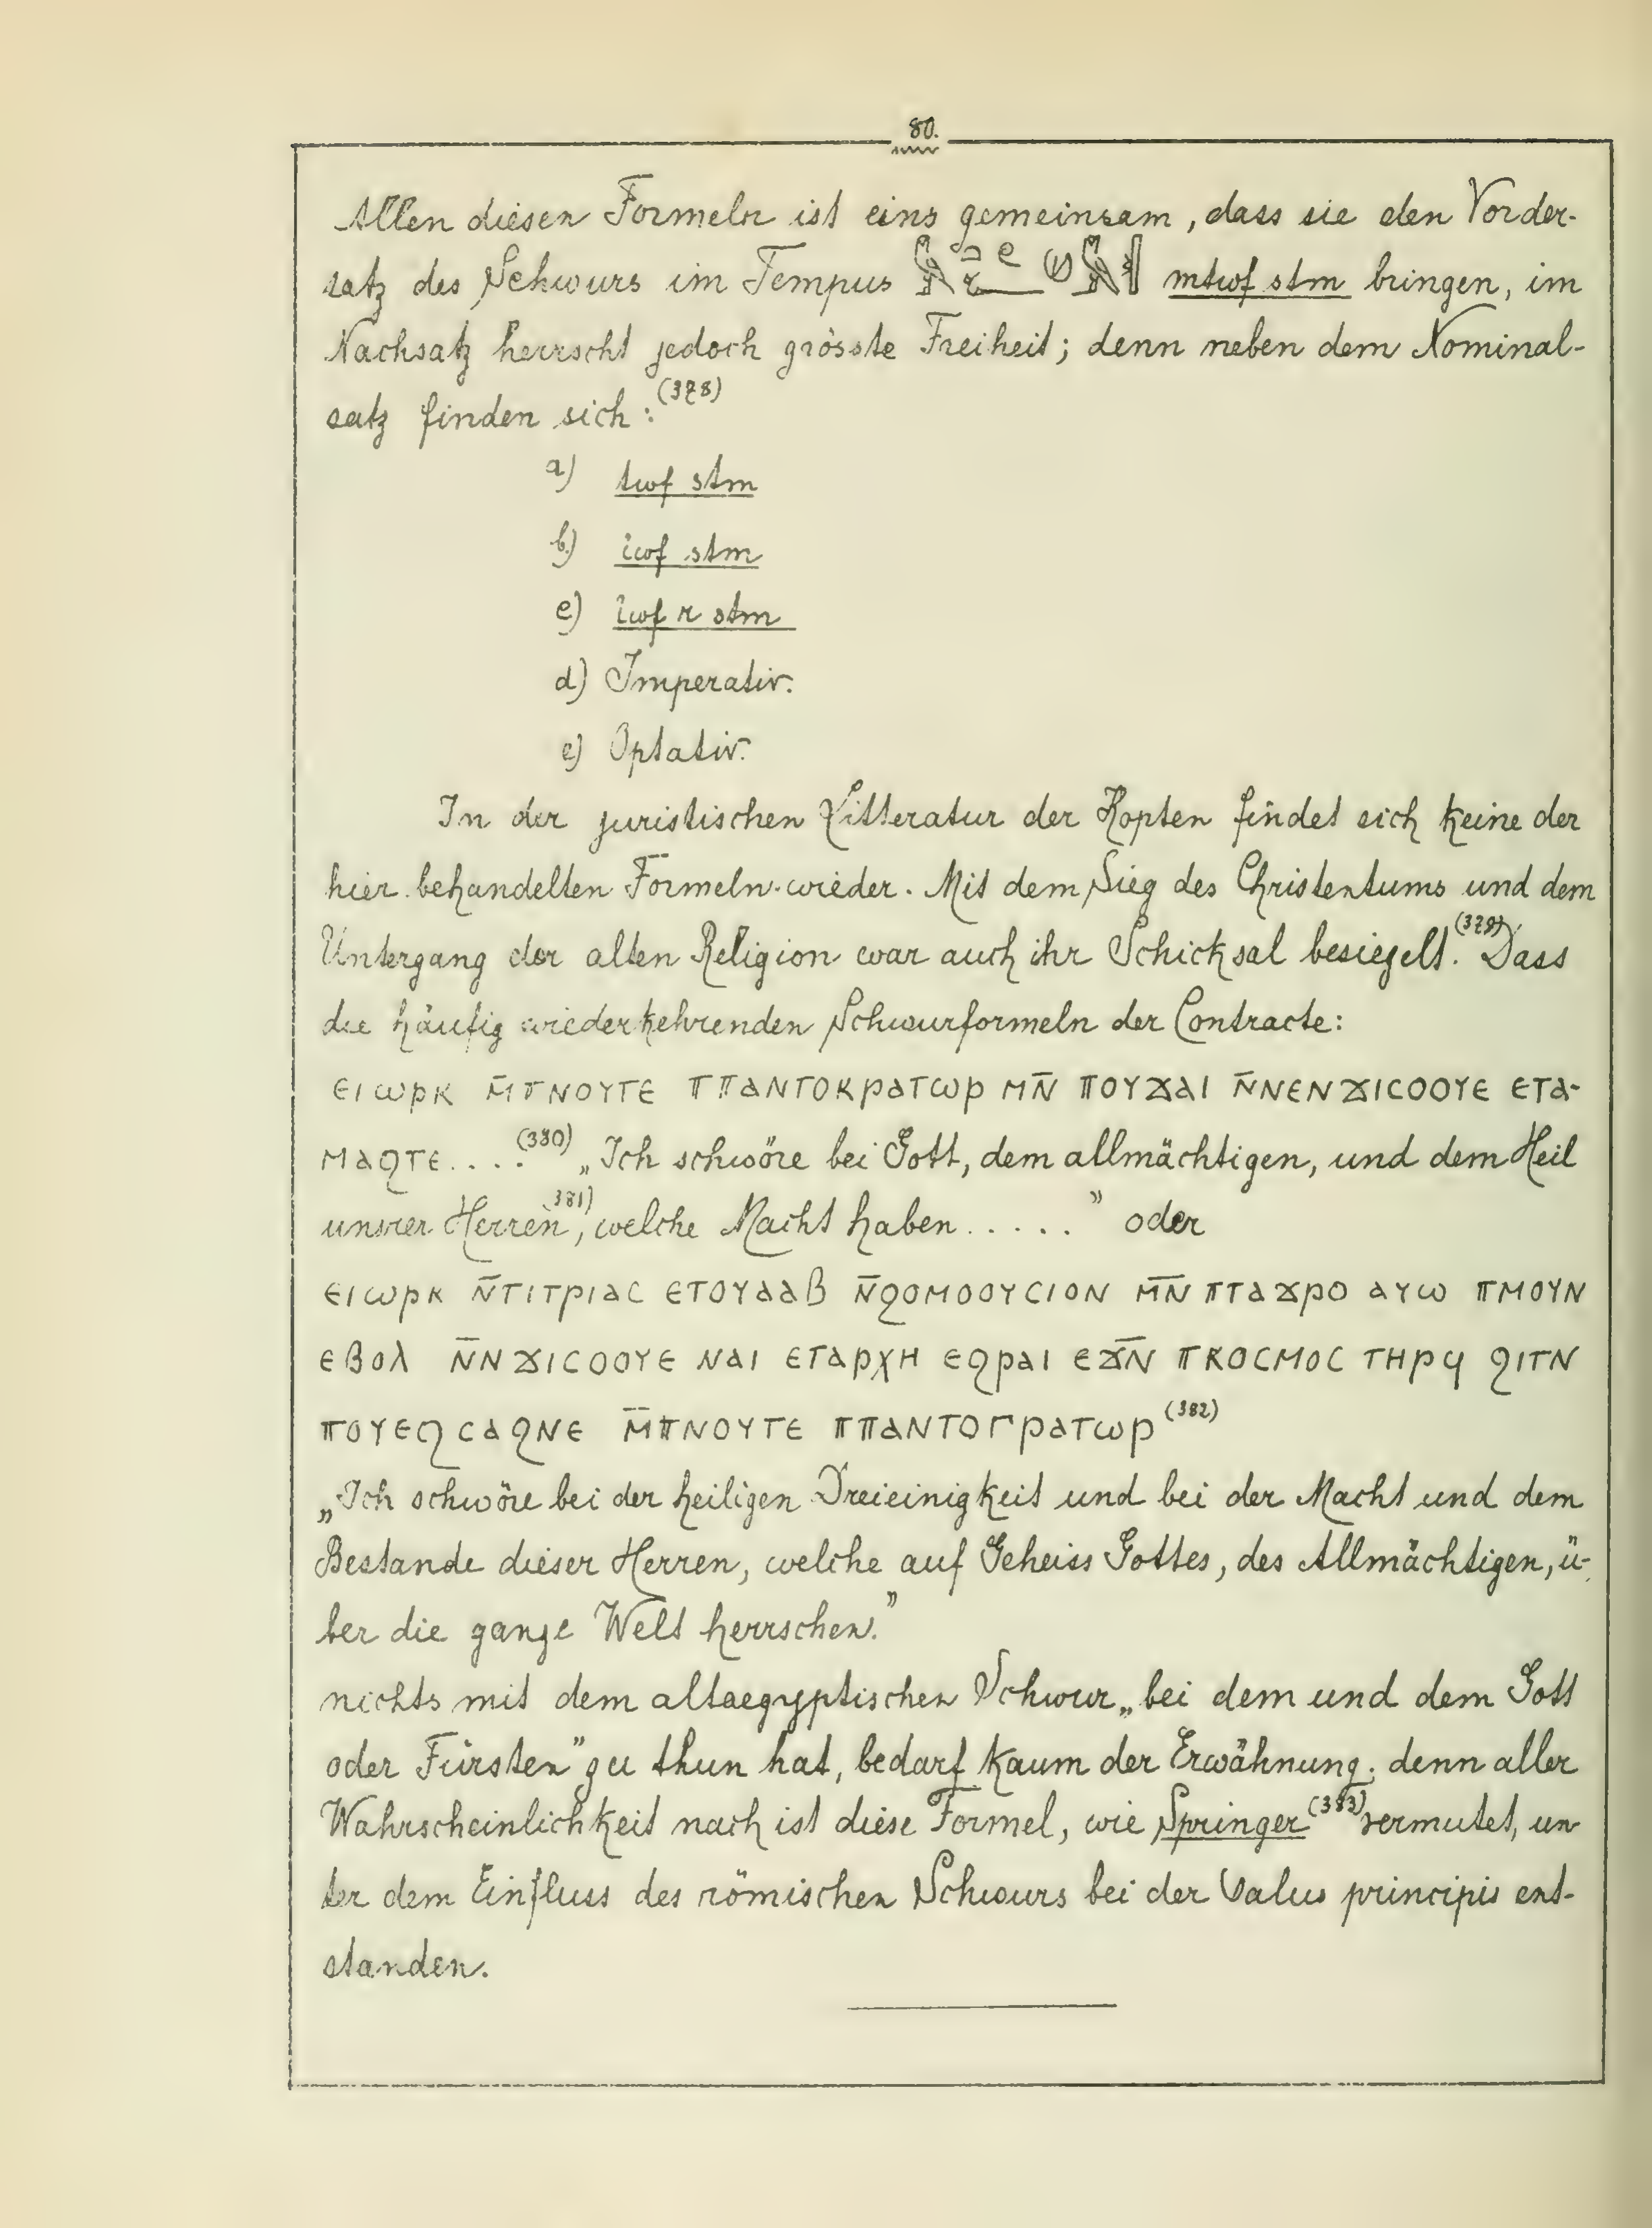 80.
Allen diesen Formeln ist eins gemeinsam, dass sie den Vorder-
satz des Schwurs im Tempus mtwf stm bringen, im
Nachsatz herrscht jedoch grösste Freiheit; denn neben dem Nominal-
satz finden sich: (378)
a) twf stm
b) iwf stm
c) iwf r stm
d) Imperativ.
e) Optativ.
In der juristischen Litteratur der Kopten findet sich keine der
hier behandelten Formeln wieder. Mit dem Sieg des Christentums und dem
Untergang der alten Religion war auch ihr Schicksal besiegelt. (379) Dass
die häufig wiederkehrenden Schwurformeln der Contracte:
ⲉⲓⲱⲣⲕ ⲙ̅ⲡⲛⲟⲩⲧⲉ ⲡⲡⲁⲛⲧⲟⲕⲣⲁⲧⲱⲣ ⲙⲛ̅ ⲡⲟⲩϫⲁⲓ ⲛ̅ⲛⲉⲛϫⲓⲥⲟⲟⲩⲉ ⲉⲧⲁ-
ⲙⲁϩⲧⲉ.... (380) „Ich schwöre bei Gott, dem allmächtigen, und dem Heil
unsrer Herren 381), welche Macht haben....." oder
ⲉⲓⲱⲣⲕ ⲛ̅ⲧⲓⲧⲣⲓⲁⲥ ⲉⲧⲟⲩⲁⲁⲃ ⲛ̅ϩⲟⲙⲟⲟⲩⲥⲓⲟⲛ ⲙⲛ̅ ⲡⲧⲁϫⲣⲟ ⲁⲩⲱ ⲡⲙⲟⲩⲛ
ⲉⲃⲟⲗ ⲛ̅ⲛϫⲓⲥⲟⲟⲩⲉ ⲛⲁⲓ ⲉⲧⲁⲣⲭⲏ ⲉϩⲣⲁⲓ ⲉϫⲛ̅ ⲡⲕⲟⲥⲙⲟⲥ ⲧⲏⲣϥ ϩⲓⲧⲛ
ⲡⲟⲩⲉϩⲥⲁϩⲛⲉ ⲙ̅ⲡⲛⲟⲩⲧⲉ ⲡⲡⲁⲛⲧⲟⲅⲣⲁⲧⲱⲣ (382)
„Ich schwöre bei der heiligen Dreieinigkeit und bei der Macht und dem
Bestande dieser Herren, welche auf Geheiss Gottes, des Allmächtigen, ü-
ber die ganze Welt herrschen."
nichts mit dem altaegyptischen Schwur „bei dem und dem Gott
oder Fürsten" zu thun hat, bedarf kaum der Erwähnung; denn aller
Wahrscheinlichkeit nach ist diese Formel, wie Springer (383) vermutet, un-
ter dem Einfluss des römischen Schwurs bei der Salus principis ent-
standen.